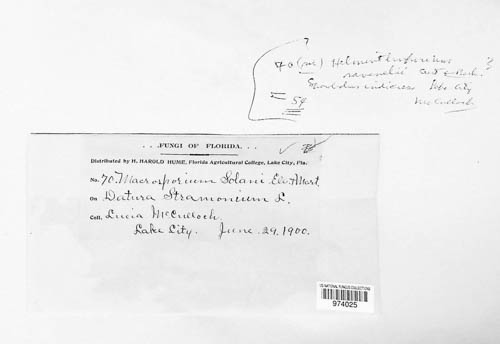 ?
70 (pub) Helminthosporium ?
ravenelii Curt & Berk.
Sporobolus indicus Lake City
McCulloch
= 54
. . . FUNGI OF FLORIDA. . . .
Distributed by H. HAROLD HUME, Florida Agricultural College, Lake City, Fla.
No. 70. Macrosporium Solani Ell. & Mart.
On Datura Stramonium L.
Coll. Lucia McCulloch.
Lake City. June. 29. 1900.
US NATIONAL FUNGUS COLLECTIONS
974025